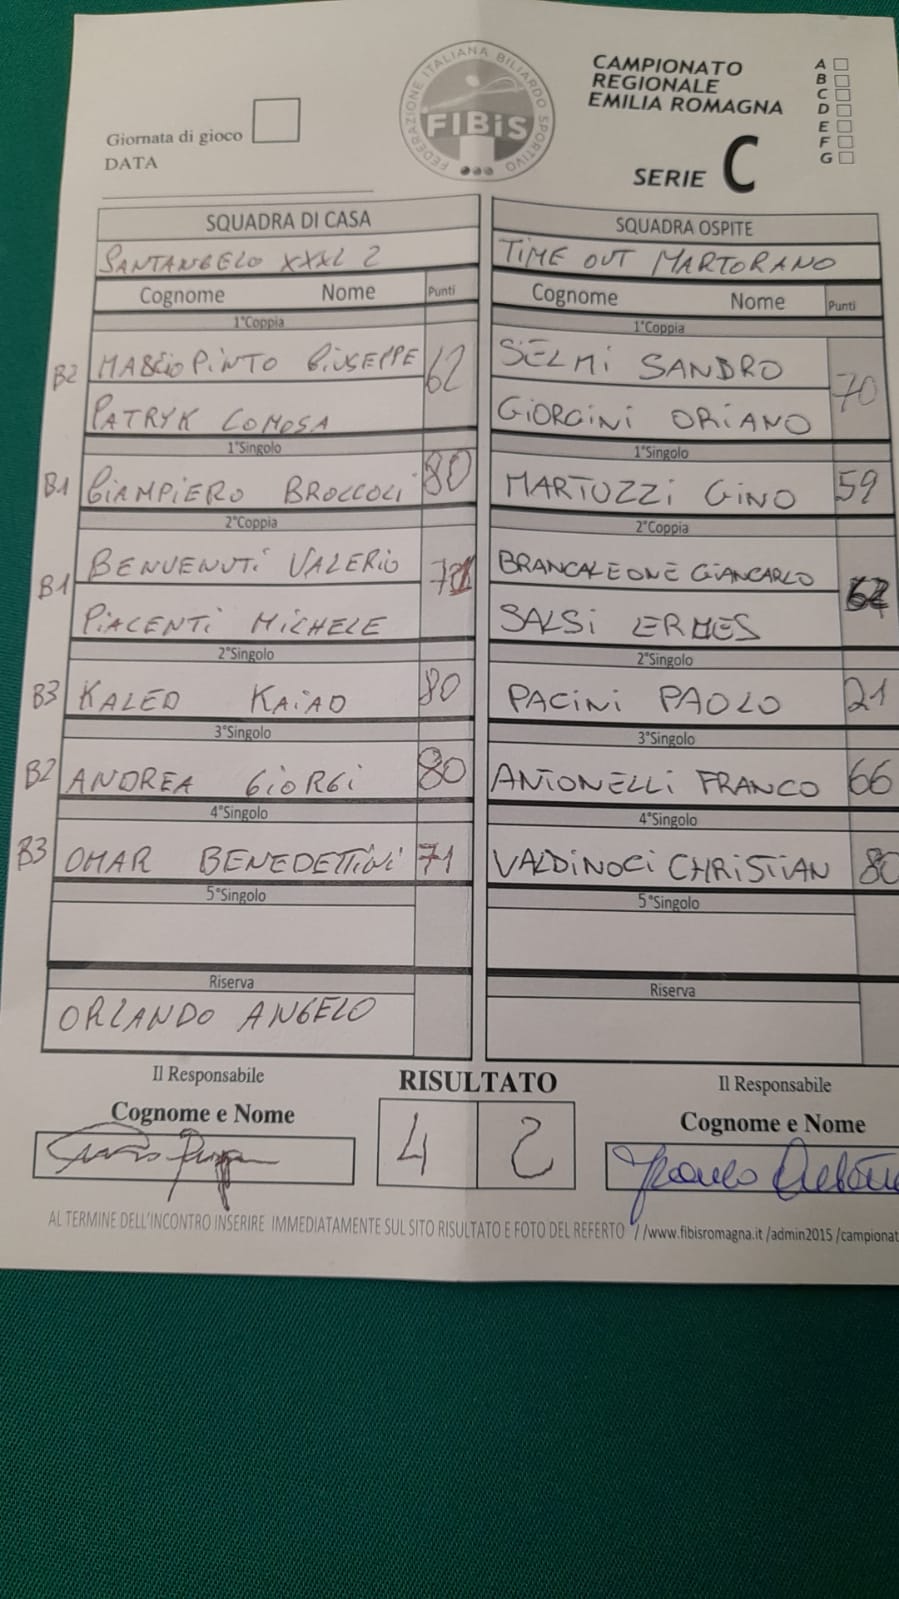 Giornata di gioco
DATA
FEDERAZIONE ITALIANA BILIARDO SPORTIVO
FIBiS
CAMPIONATO
REGIONALE
EMILIA ROMAGNA
SERIE C
A
B
C
D
E
F
G
SQUADRA DI CASA
SANTANGELO XXXL 2
Cognome Nome Punti
1°Coppia
B2 MASCIOPINTO GIUSEPPE 62
PATRYK COMOSA
1°Singolo
B1 GIAMPIERO BROCCOLI 80
2°Coppia
B1 BENVENUTI VALERIO
PIACENTI MICHELE
2°Singolo
B3 KALED KAIAD 80
3°Singolo
B2 ANDREA GIORGI 80
4°Singolo
B3 OMAR BENEDETTINI 71
5°Singolo
Riserva
ORLANDO ANGELO
SQUADRA OSPITE
TIME OUT MARTORANO
Cognome Nome Punti
1°Coppia
SELMI SANDRO 70
GIORGINI ORIANO
1°Singolo
MARTUZZI GINO 59
2°Coppia
BRANCALEONE GIANCARLO
SALSI ERMES
2°Singolo
PACINI PAOLO 21
3°Singolo
ANTONELLI FRANCO 66
4°Singolo
VALDINOCI CHRISTIAN 80
5°Singolo
Riserva
Il Responsabile
Cognome e Nome
RISULTATO
4 2
Il Responsabile
Cognome e Nome
AL TERMINE DELL'INCONTRO INSERIRE IMMEDIATAMENTE SUL SITO RISULTATO E FOTO DEL REFERTO //www.fibisromagna.it /admin2015 /campionat